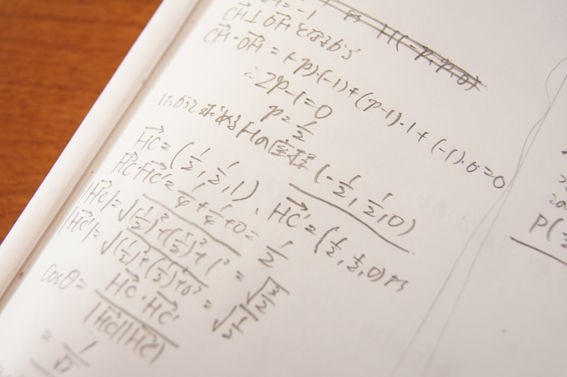 CH⊥OHであるから
CH・OH = (-p)・(-1)+(p-1)・1+(-1)・0=0
∴2p-1=0
p=1/2
Hの座標(-1/2,1/2,0)
HC=(1/2,1/2,1)、HC'=(1/2,1/2,0)より
HC・HC'=1/4+1/4+0=1/2
|HC|=√((1/2)²+(1/2)²+1²)=√(3/2)
|HC'|=√((1/2)²+(1/2)²+0²)=√(1/2)
cosθ=HC・HC'/|HC||HC'|
=1/√3